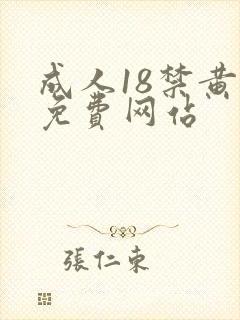 成人18禁黄
免費网佔
張仁東